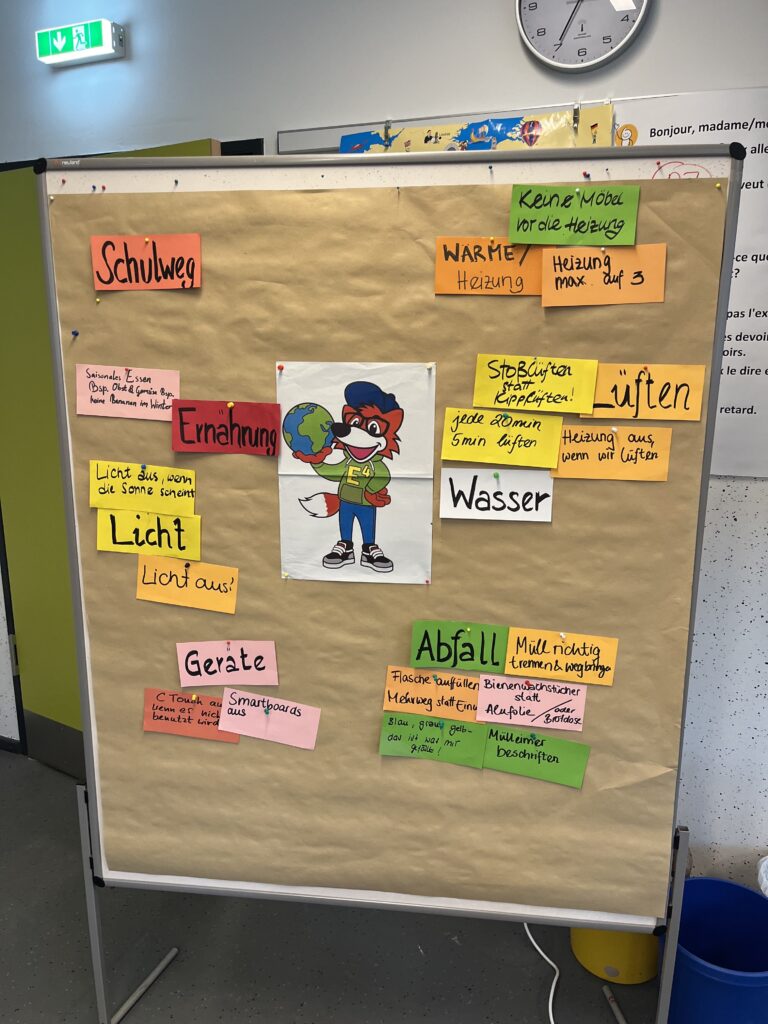 neuland
Bonjour, madame/
Keine Möbel
vor die Heizung
Schulweg
WÄRME/
Heizung
Heizung
max. auf 3
Saisonales Essen
Bsp. Obst & Gemüse Bsp.
keine Bananen im Winter
Ernährung
Stoßlüften
statt
Kipplüften!
Lüften
jede 20 min
5 min lüften
Heizung aus,
wenn wir lüften
Wasser
E4
Licht aus, wenn
die Sonne scheint
Licht
Licht aus!
Geräte
C Touch
wenn es
benutzt wird
Smartboards
aus
Abfall
Müll richtig
trennen & wegbringen
Flasche auffüllen
Mehrweg statt
Bienenwachstücher
statt
Alufolie/oder
Brotdose
Blau, grau, gelb-
das ist was mir
gefällt!
Mülleimer
beschriften
pas l'ex
le dire
retard.